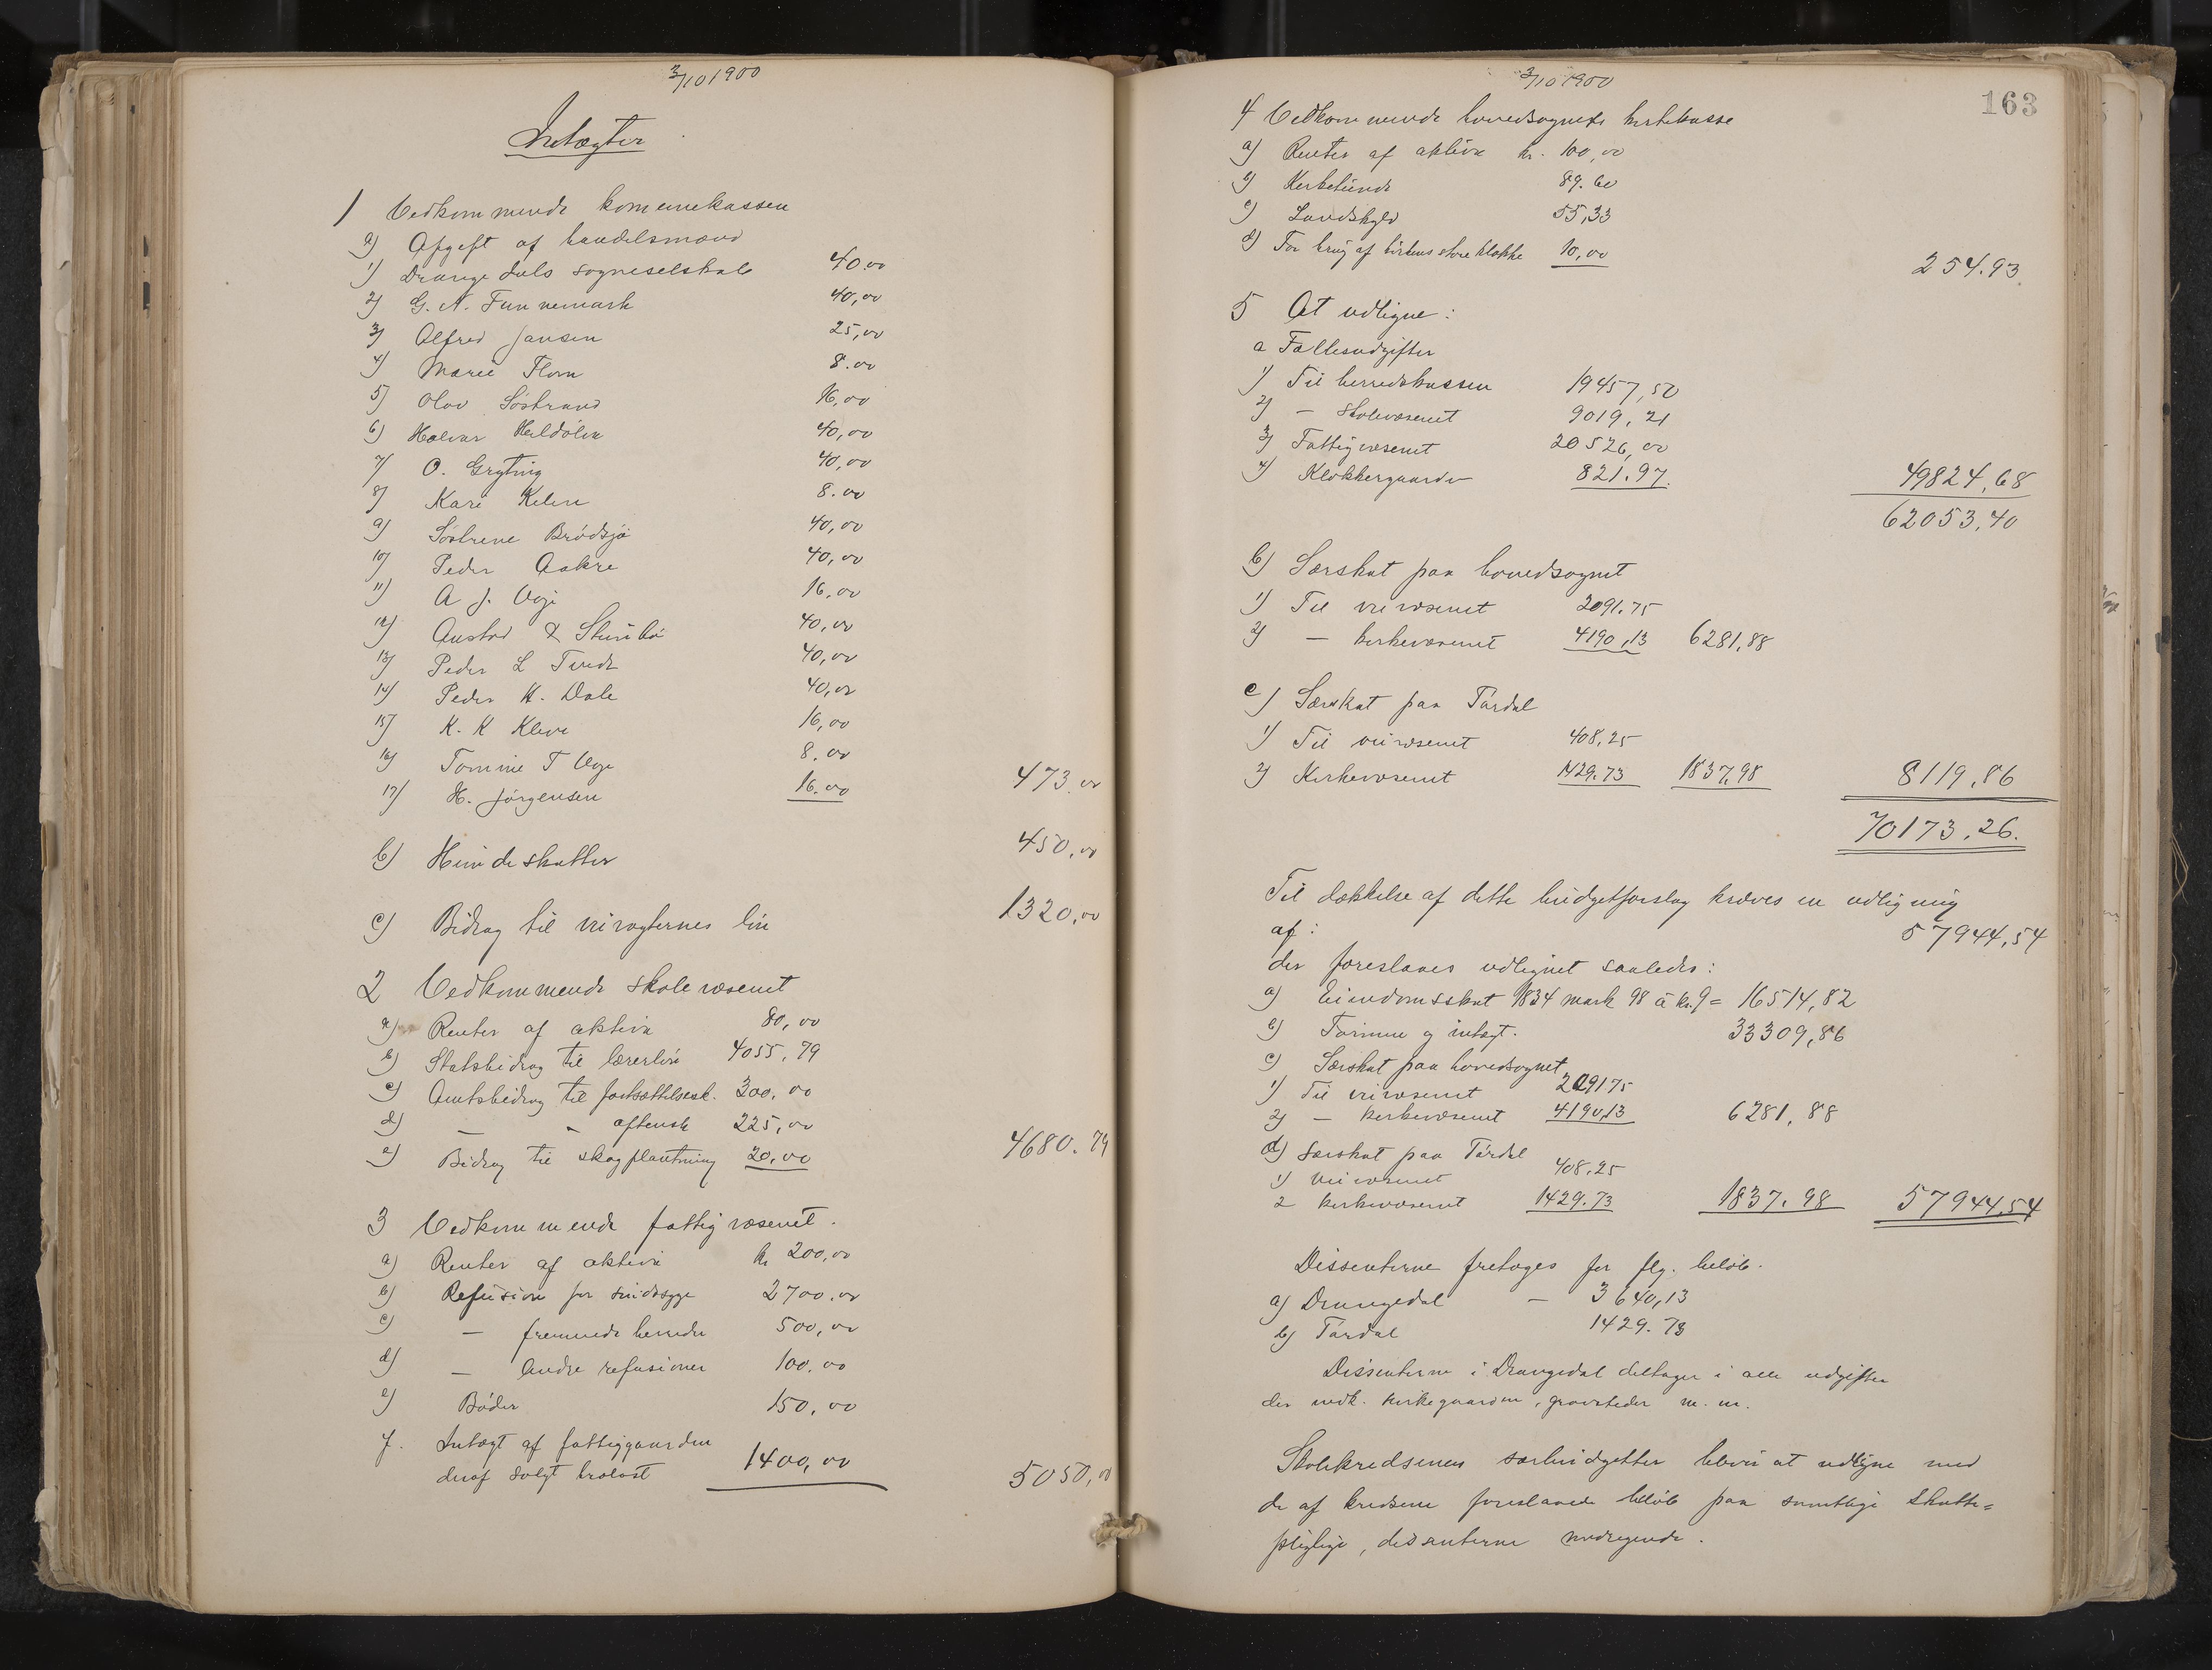 3/10 1900
Indtægter
1 Vedkommende kommunekassen
a) Afgift af handelsmænd
1) Drangedals sogneselskab 40.00
2) G. N. Funnemark 40,00
3) Alfred Jansen 25,00
4) Marie Flom 8.00
5) Olav Söstrand 16,00
6) Halvor Heldölen 40,00
7) O. Gryting 40,00
8) Kari Kelen 8.00
9) Söstrene Brödsjö 40,00
10) Peder Aakre 40,00
11) A J. Voje 16,00
12) Austad & Stensbö 40,00
13) Peder L Tvede 40,00
14) Peder K. Dale 40,00
15) K. K Kleve 16,00
16) Tomine T Voje 8.00
17) H. Jörgensen 16.00 473.00
b) Hundeskatter 450,00
c) Bidrag til veivogternes lön 1320,00
2 Vedkommende skolevæsenet
a) Renter af aktiva 80,00
b) Statsbidrag til lærerlön 4055,79
c) Amtsbidrag til fortsættelsessk. 300,00
d) — „ aftensk 225,00
e) Bidrag til skogplantning 20,00 4680.79
3 Vedkommende fattigvæsenet.
a) Renter af aktiva kr 200,00
b) Refusion for sindssyge 2700.00
c) — fremmede herreder 500,00
d) — Andre refusioner 100.00
e) Böder 150,00
f. Indtægt af fattiggaarden
deraf solgt 1400,00 5050,00
3/10 1900
163
4 Vedkommende hovedsognets kirkekasse
a) Renter af aktiva kr. 100,00
b) Kirketiende 89.60
c) Landskyld 55,33
d) For brug af kirkens store klokke 10,00 254.93
5 At udligne:
a Fællesudgifter
1) Til herredskassen 19457,50
2) — skolevæsenet 9019,21
3) Fattigvæsenet 20526,00
4) Klokkergaarden 821.97. 49824,68
62053,40
b) Særskat paa hovedsognet
1) Til veivæsenet 2091.75
2) — kirkevæsenet 4190,13 6281,88
c) Særskat paa Tördal
1) Til veivæsenet 408,25
2) Kirkevæsenet 1429.73 1837,98 8119,86
70173,26.
Til dækkelse af dette budgetforslag kræves en udligning
af: 57944,54
der foreslaaes udlignet saaledes:
a) Eiendomsskat 1834 mark 98 à kr. 9 = 16514,82
b) Formue og indtægt. 33309,86
c) Særskat paa hovedsognet
1) Til veivæsenet 209175
2) — kirkevæsenet 4190,13 6281,88
d) særskat paa Tördal
1) veivæsenet 408.25
2 kirkevæsenet 1429.73 1837.98 57944,54
Dissenterne fretages for flg. belöb.
a) Drangedal — 3640,13
b) Tördal 1429.73
Dissenterne i Drangedal deltager i alle udgifter
der vedk. kirkegaarden, gravsteder m. m.
Skolekredsenes særbudgetter blev at udligne med
de af kredsene foreslaaede belöb paa samtlige skatte=
pligtige, dissenterne medregende.